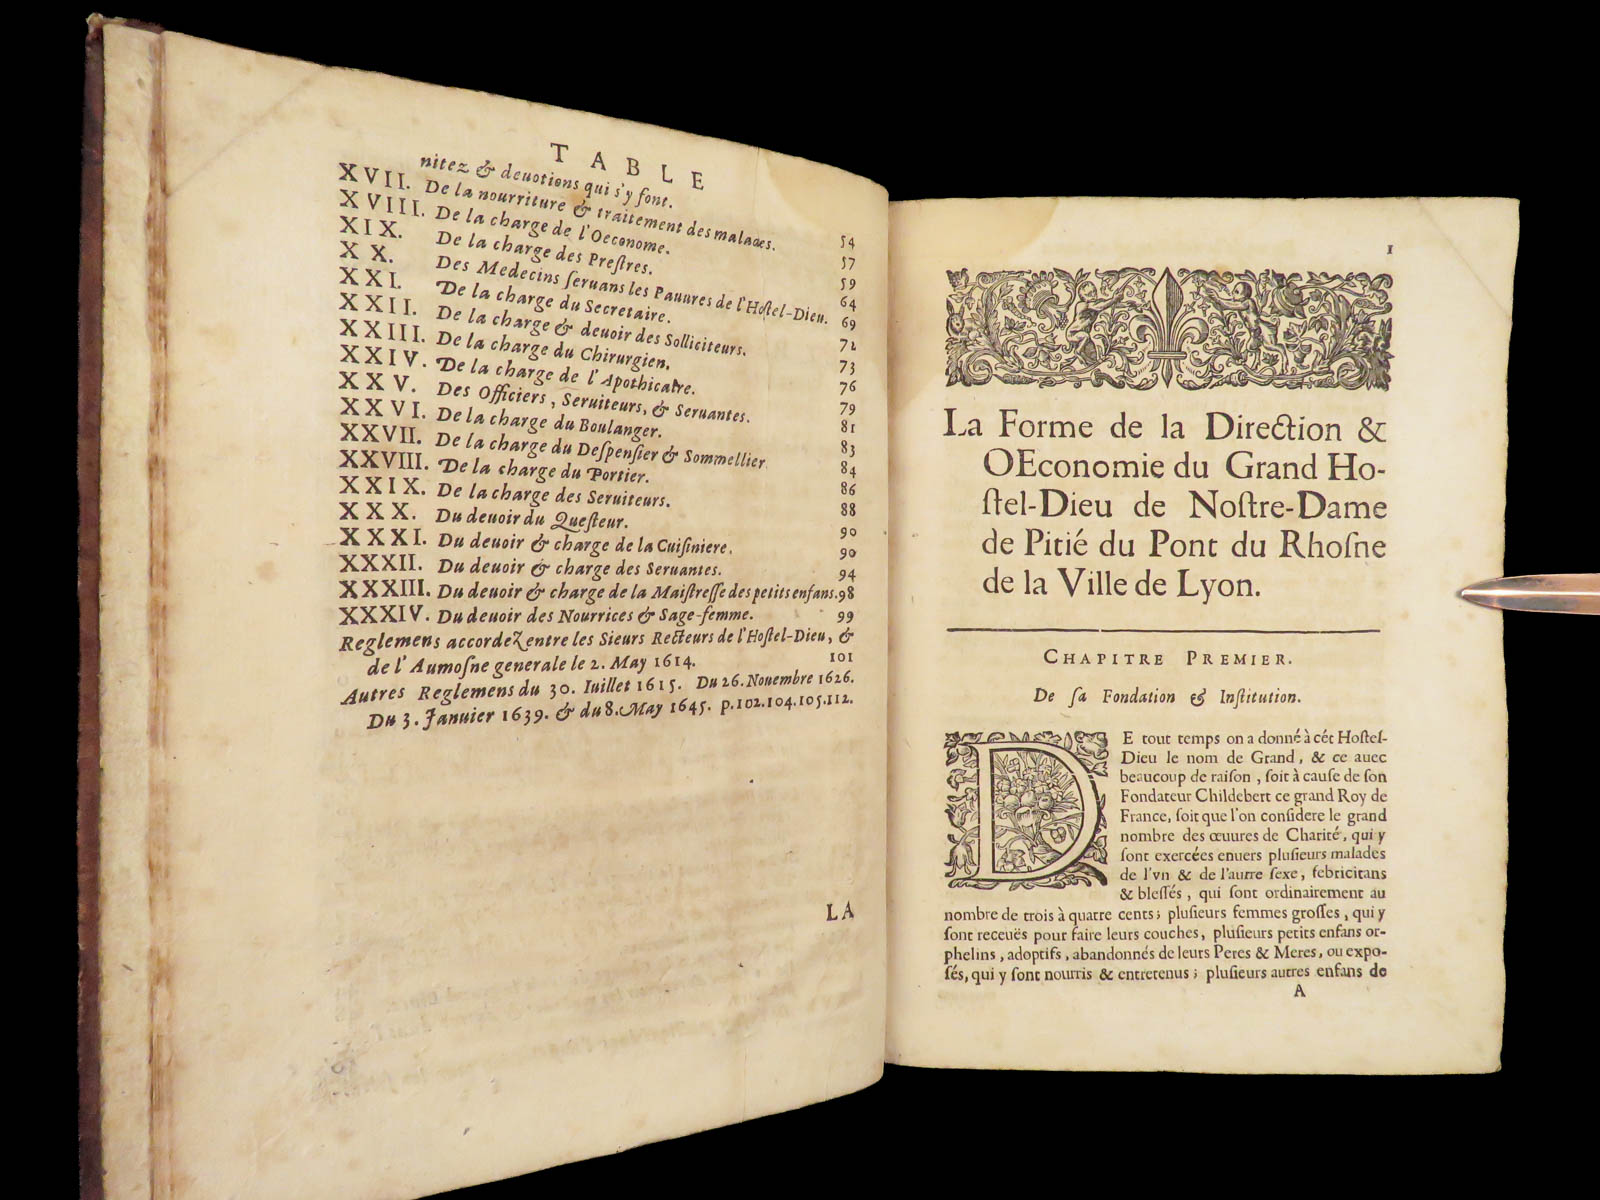 TABLE
nitez & deuotions qui s'y font. 54
XVII. De la nourriture & traitement des malades. 57
XVIII. De la charge de l'Oeconome. 59
XIX. De la charge des Preſtres. 64
XX. Des Medecins ſeruans les Pauures de l'Hoſtel-Dieu. 69
XXI. De la charge du Secretaire. 72
XXII. De la charge & deuoir des Solliciteurs. 73
XXIII. De la charge du Chirurgien. 76
XXIV. De la charge de l'Apothicaire. 79
XXV. Des Officiers, Seruiteurs, & Seruantes. 81
XXVI. De la charge du Boulanger. 83
XXVII. De la charge du Deſpenſier & Sommellier. 84
XXVIII. De la charge du Portier. 86
XXIX. De la charge des Seruiteurs. 88
XXX. Du deuoir du Queſteur. 90
XXXI. Du deuoir & charge de la Cuiſiniere. 90
XXXII. Du deuoir & charge des Seruantes. 94
XXXIII. Du deuoir & charge de la Maiſtreſſe des petits enfans. 98
XXXIV. Du deuoir des Nourrices & Sage-femme. 99
Reglemens accordez entre les Sieurs Recteurs de l'Hoſtel-Dieu, &
de l'Aumoſne generale le 2. May 1614. 101
Autres Reglemens du 30. Iuillet 1615. Du 26. Nouembre 1626.
Du 3. Ianuier 1639. & du 8. May 1645. p. 102. 104. 105. 112.
LA
1
La Forme de la Direction &
OEconomie du Grand Ho-
ſtel-Dieu de Noſtre-Dame
de Pitié du Pont du Rhoſne
de la Ville de Lyon.
CHAPITRE PREMIER.
De ſa Fondation & Inſtitution.
DE tout temps on a donné à cét Hoſtel-
Dieu le nom de Grand, & ce auec
beaucoup de raiſon, ſoit à cauſe de ſon
Fondateur Childebert ce grand Roy de
France, ſoit que l'on conſidere le grand
nombre des œuures de Charité, qui y
ſont exercées enuers pluſieurs malades
de l'vn & de l'autre ſexe, febricitans
& bleſſés, qui ſont ordinairement au
nombre de trois à quatre cents; pluſieurs femmes groſſes, qui y
ſont receuës pour faire leurs couches, pluſieurs petits enfans or-
phelins, adoptifs, abandonnés de leurs Peres & Meres, ou expo-
ſés, qui y ſont nourris & entretenus; pluſieurs autres enfans de
A